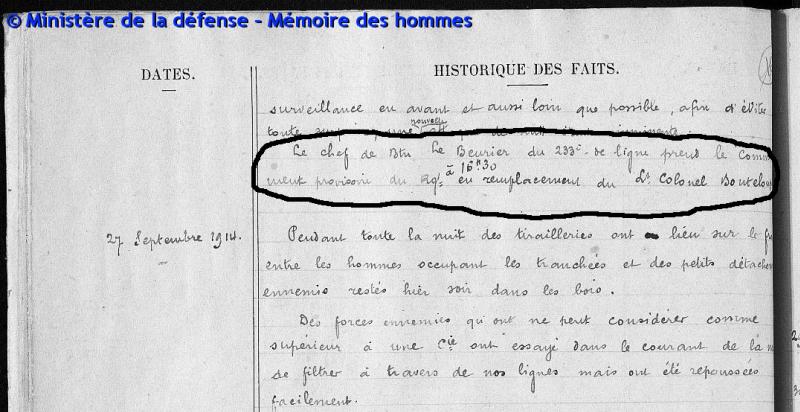 © Ministère de la défense - Mémoire des hommes
DATES.
HISTORIQUE DES FAITS.
surveillance en avant et aussi loin que possible, afin d'évite
toute une nouvelle de nuit étant imminente
Le chef de Btn Le Beurier du 233e de ligne prend le Comm
à 16h30
ment provisoire du Rgt en remplacement du Lt Colonel Boutelou
27 Septembre 1914.
Pendant toute la nuit des tirailleries ont lieu sur le fr
entre les hommes occupant les tranchées et des petits détache
ennemis restés hier soir dans les bois.
Des forces ennemies qu'on ne peut considérer comme
supérieur à une Cie ont essayé dans le courant de la n
de filtrer à travers de nos lignes mais ont été repoussées
facilement.